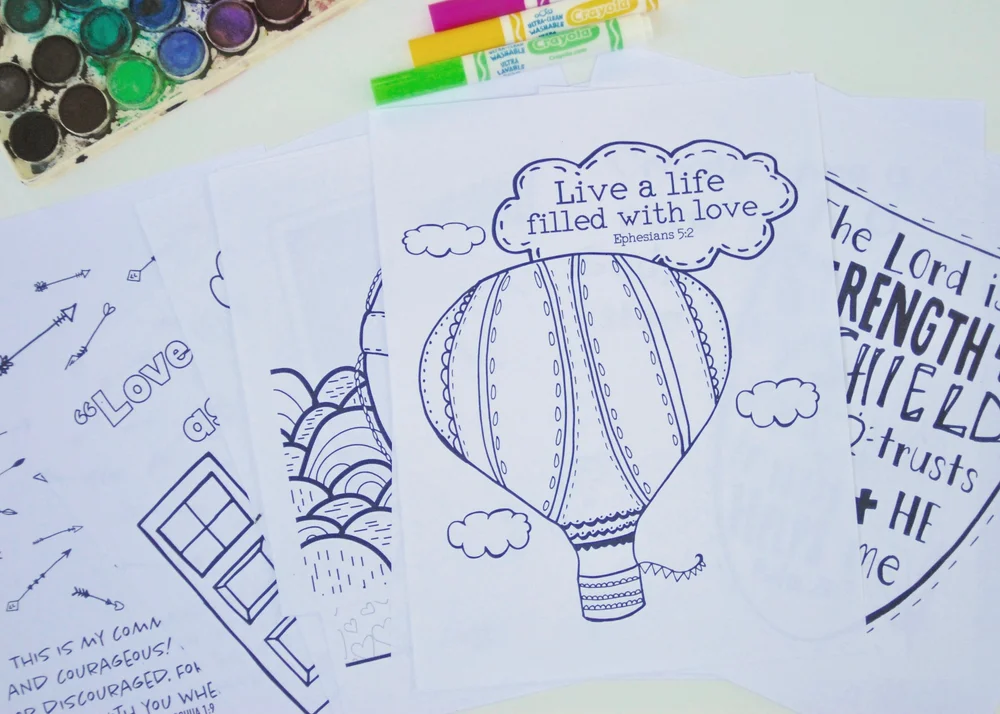 Crayola
ULTRA-CLEAN
WASHABLE
Crayola
WASHABLE
ULTRA
LAVABLE
Live a life
filled with love
Ephesians 5:2
"Love
THIS IS MY COMM
AND COURAGEOUS!
OR DISCOURAGED, FOR
WITH YOU WHE
1:9
The Lord is
STRENGTH
SHIELD
trusts
HE
me